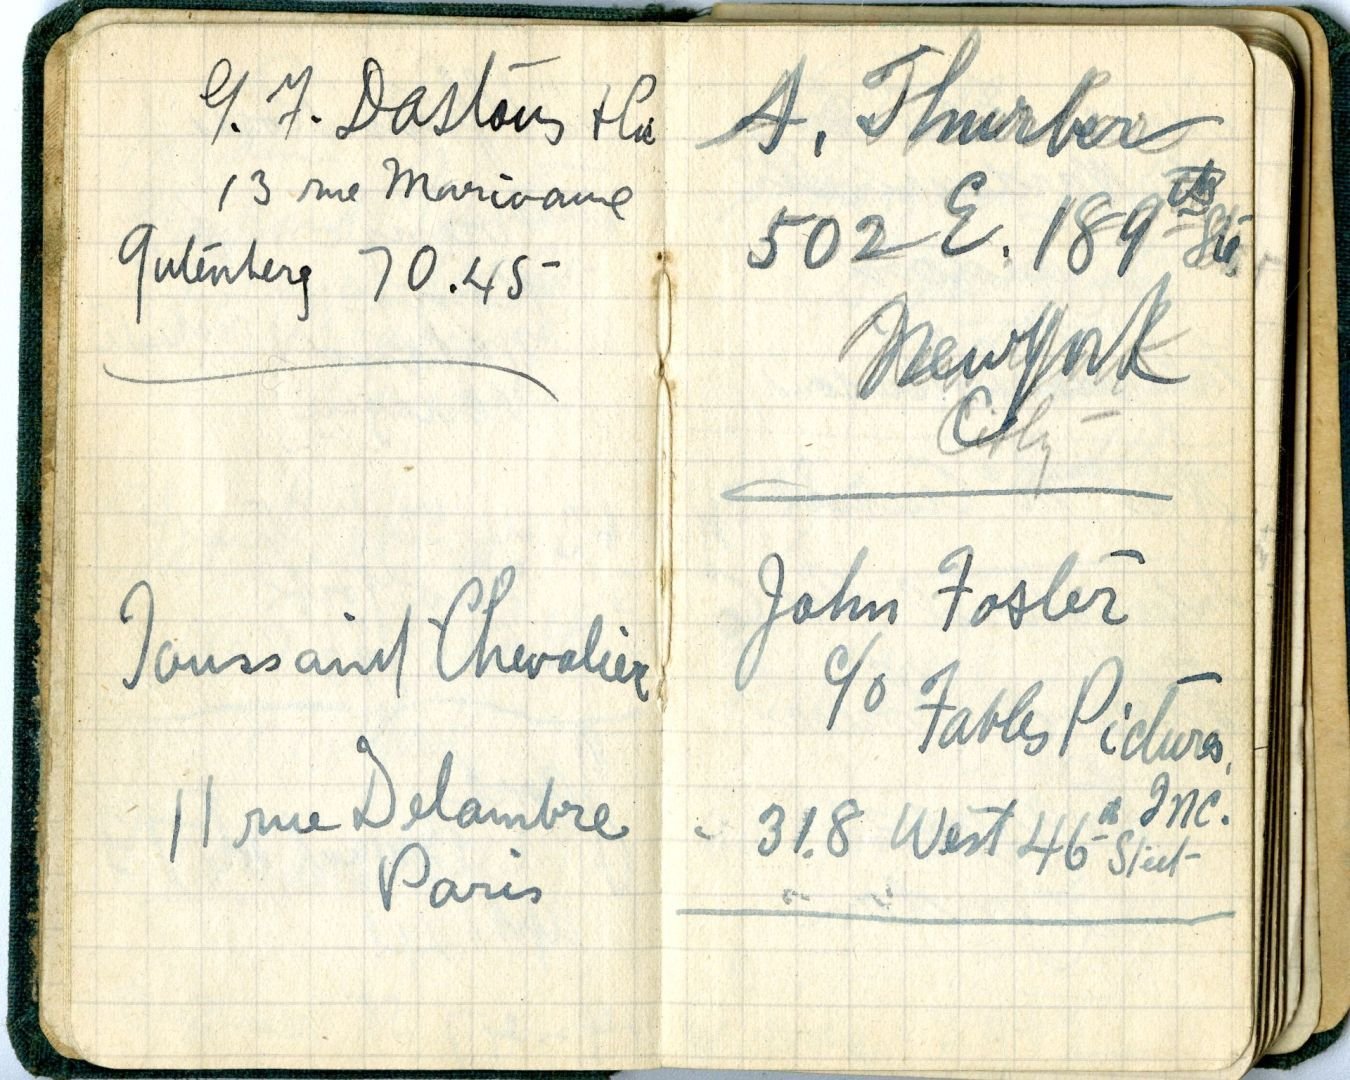 G. F. Dastous + Cie
13 rue Marivaux
Gutenberg 70.45
Toussaint Chevalier
11 rue Delambre
Paris
A. Thurber
502 E. 189th Str.
New York
City
John Foster
c/o Fables Pictures,
Inc.
318 West 46th Street